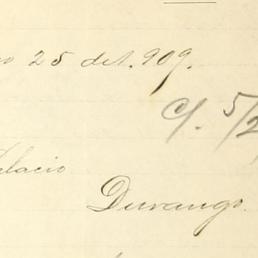 o 25 del. 909.
C/. 5/2
alacio
Durango.